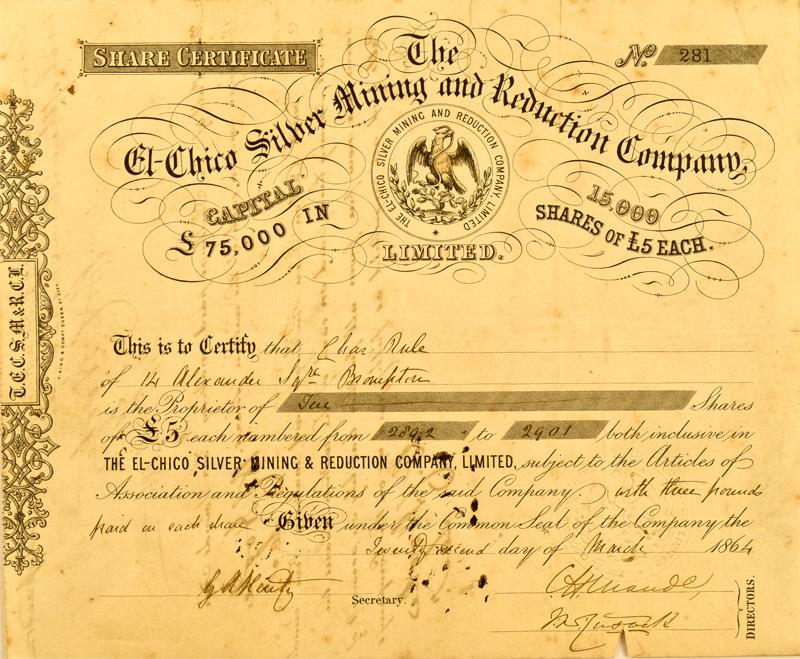 SHARE CERTIFICATE
No. 281
The
El-Chico Silver Mining and Reduction Company,
THE EL-CHICO SILVER MINING AND REDUCTION COMPANY, LIMITED
CAPITAL
£75,000 IN
LIMITED.
15,000
SHARES OF £5 EACH.
T.E.C.S.M&R.C.L.
This is to Certify that Chas. Rule
of 14 Alexander Sqre Brompton
is the Proprietor of Ten Shares
of £5 each numbered from 2892 to 2901 both inclusive in
THE EL-CHICO SILVER MINING & REDUCTION COMPANY, LIMITED, subject to the Articles of
Association and Regulations of the said Company. with three pounds
paid on each share Given under the Common Seal of the Company the
Twenty second day of March 1864
Secretary.
DIRECTORS.